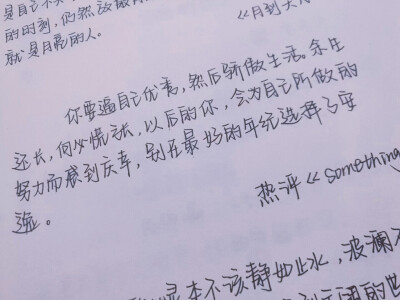 是自己不
的时刻,仍然
就是月亮的人。
《月到天
你要逼自己优秀,然后骄傲生活。余生
还长,何必慌张,以后的你,会为自己所做的
努力而感到庆幸,别在最好的年纪选择了安
逸。
热评《something
本不该静如止水,波澜